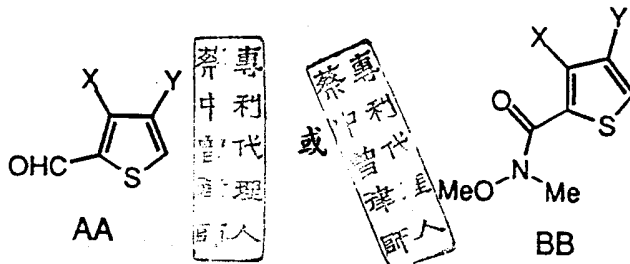 X
Y
OHC
S
AA
專利代理人
蔡中曾律師
或
專利代理人
蔡中曾律師
X
Y
O
S
N
MeO
Me
BB